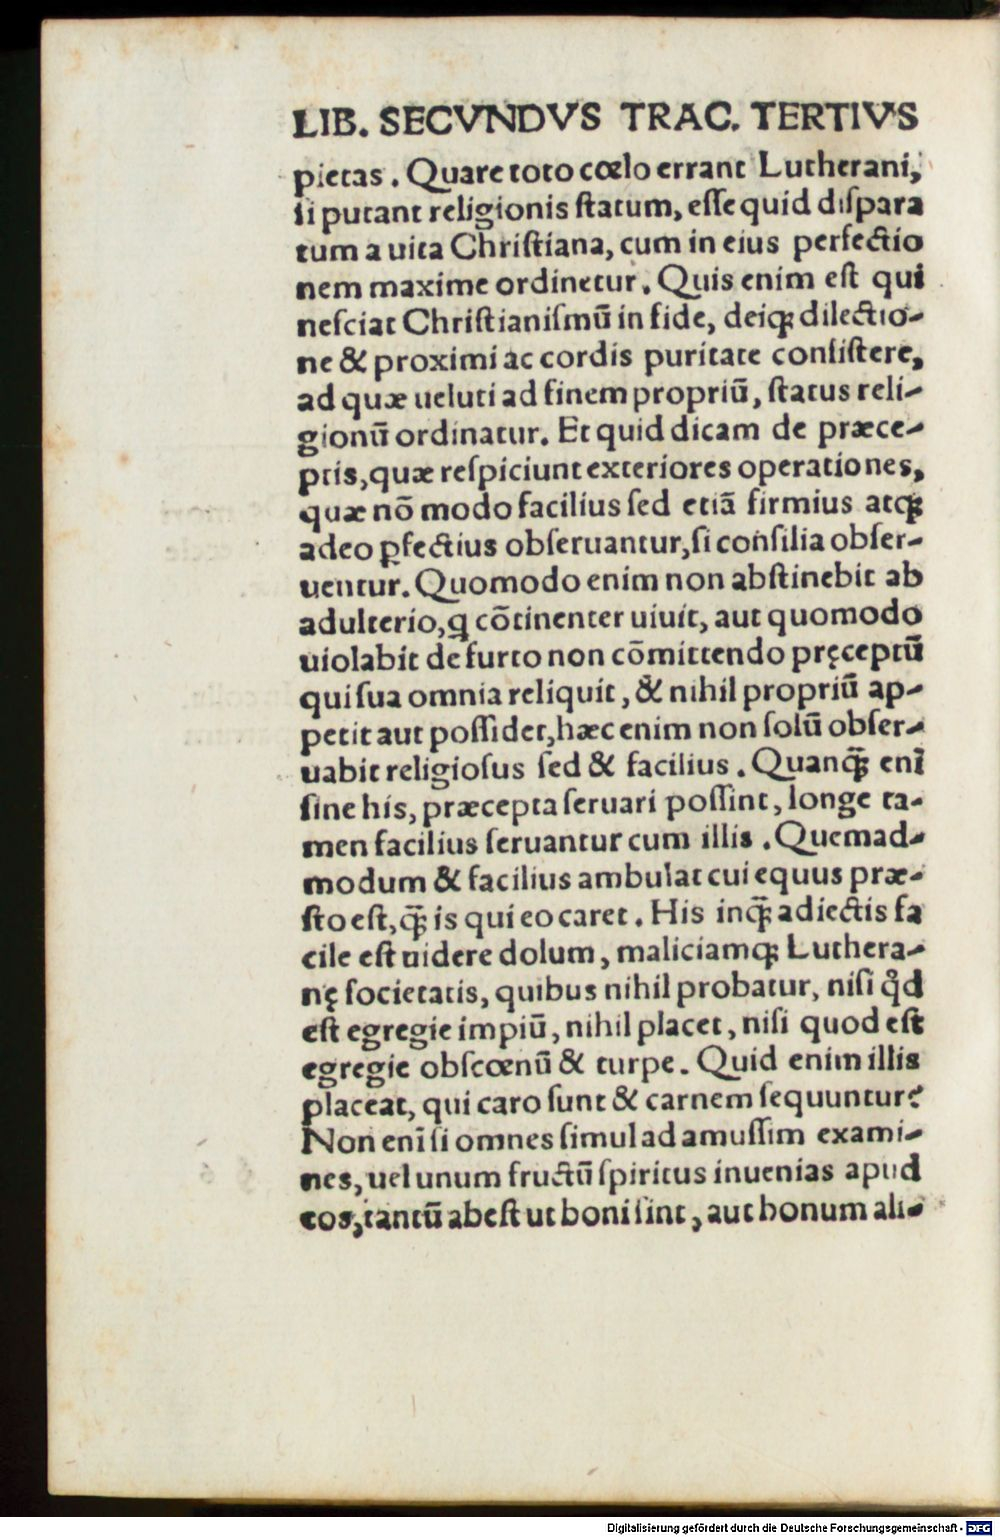 LIB. SECVNDVS TRAC. TERTIVS
pietas. Quare toto cœlo errant Lutherani,
ſi putant religionis ſtatum, eſſe quid diſpara
tum a uita Chriſtiana, cum in eius perfectio
nem maxime ordinetur. Quis enim eſt qui
neſciat Chriſtianiſmū in fide, deiqꝫ dilectio-
ne & proximi ac cordis puritate conſiſtere,
ad quæ ueluti ad finem propriū, ſtatus reli-
gionū ordinatur. Et quid dicam de præce-
ptis, quæ reſpiciunt exteriores operationes,
quæ nō modo facilius ſed etiā firmius atqꝫ
adeo ꝑfectius obſeruantur, ſi conſilia obſer-
uentur. Quomodo enim non abſtinebit ab
adulterio, q cōtinenter uiuit, aut quomodo
uiolabit de furto non cōmittendo pręceptū
qui ſua omnia reliquit, & nihil propriū ap-
petit aut poſſidet, hæc enim non ſolū obſer-
uabit religioſus ſed & facilius. Quanqꝫ̄ enī
ſine his, præcepta ſeruari poſſint, longe ta-
men facilius ſeruantur cum illis. Quemad-
modum & facilius ambulat cui equus præ-
ſto eſt, qꝫ̄ is qui eo caret. His inqꝫ̄ adiectis fa
cile eſt uidere dolum, maliciamqꝫ Luthera-
nę ſocietatis, quibus nihil probatur, niſi qͦd
eſt egregie impiū, nihil placet, niſi quod eſt
egregie obſcœnū & turpe. Quid enim illis
placeat, qui caro ſunt & carnem ſequuntur?
Non enī ſi omnes ſimul ad amuſſim exami-
nes, uel unum fructū ſpiritus inuenias apud
eos, tantū abeſt ut boni ſint, aut bonum ali-
Digitalisierung gefördert durch die Deutsche Forschungsgemeinschaft - DFG